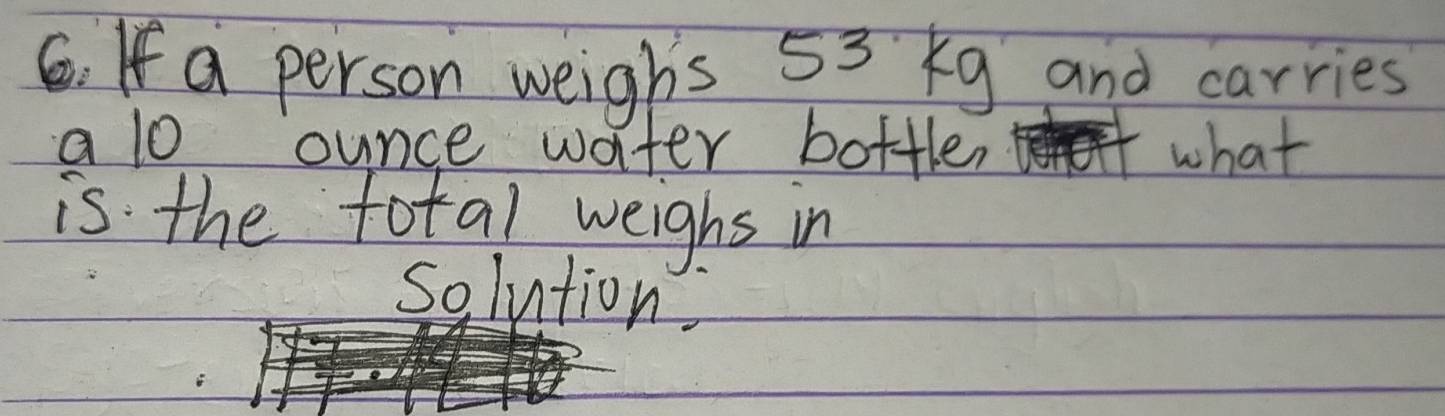 6. If a person weighs 53 kg and carries
a 10 ounce water bottle, what
is the total weighs in
Solution: